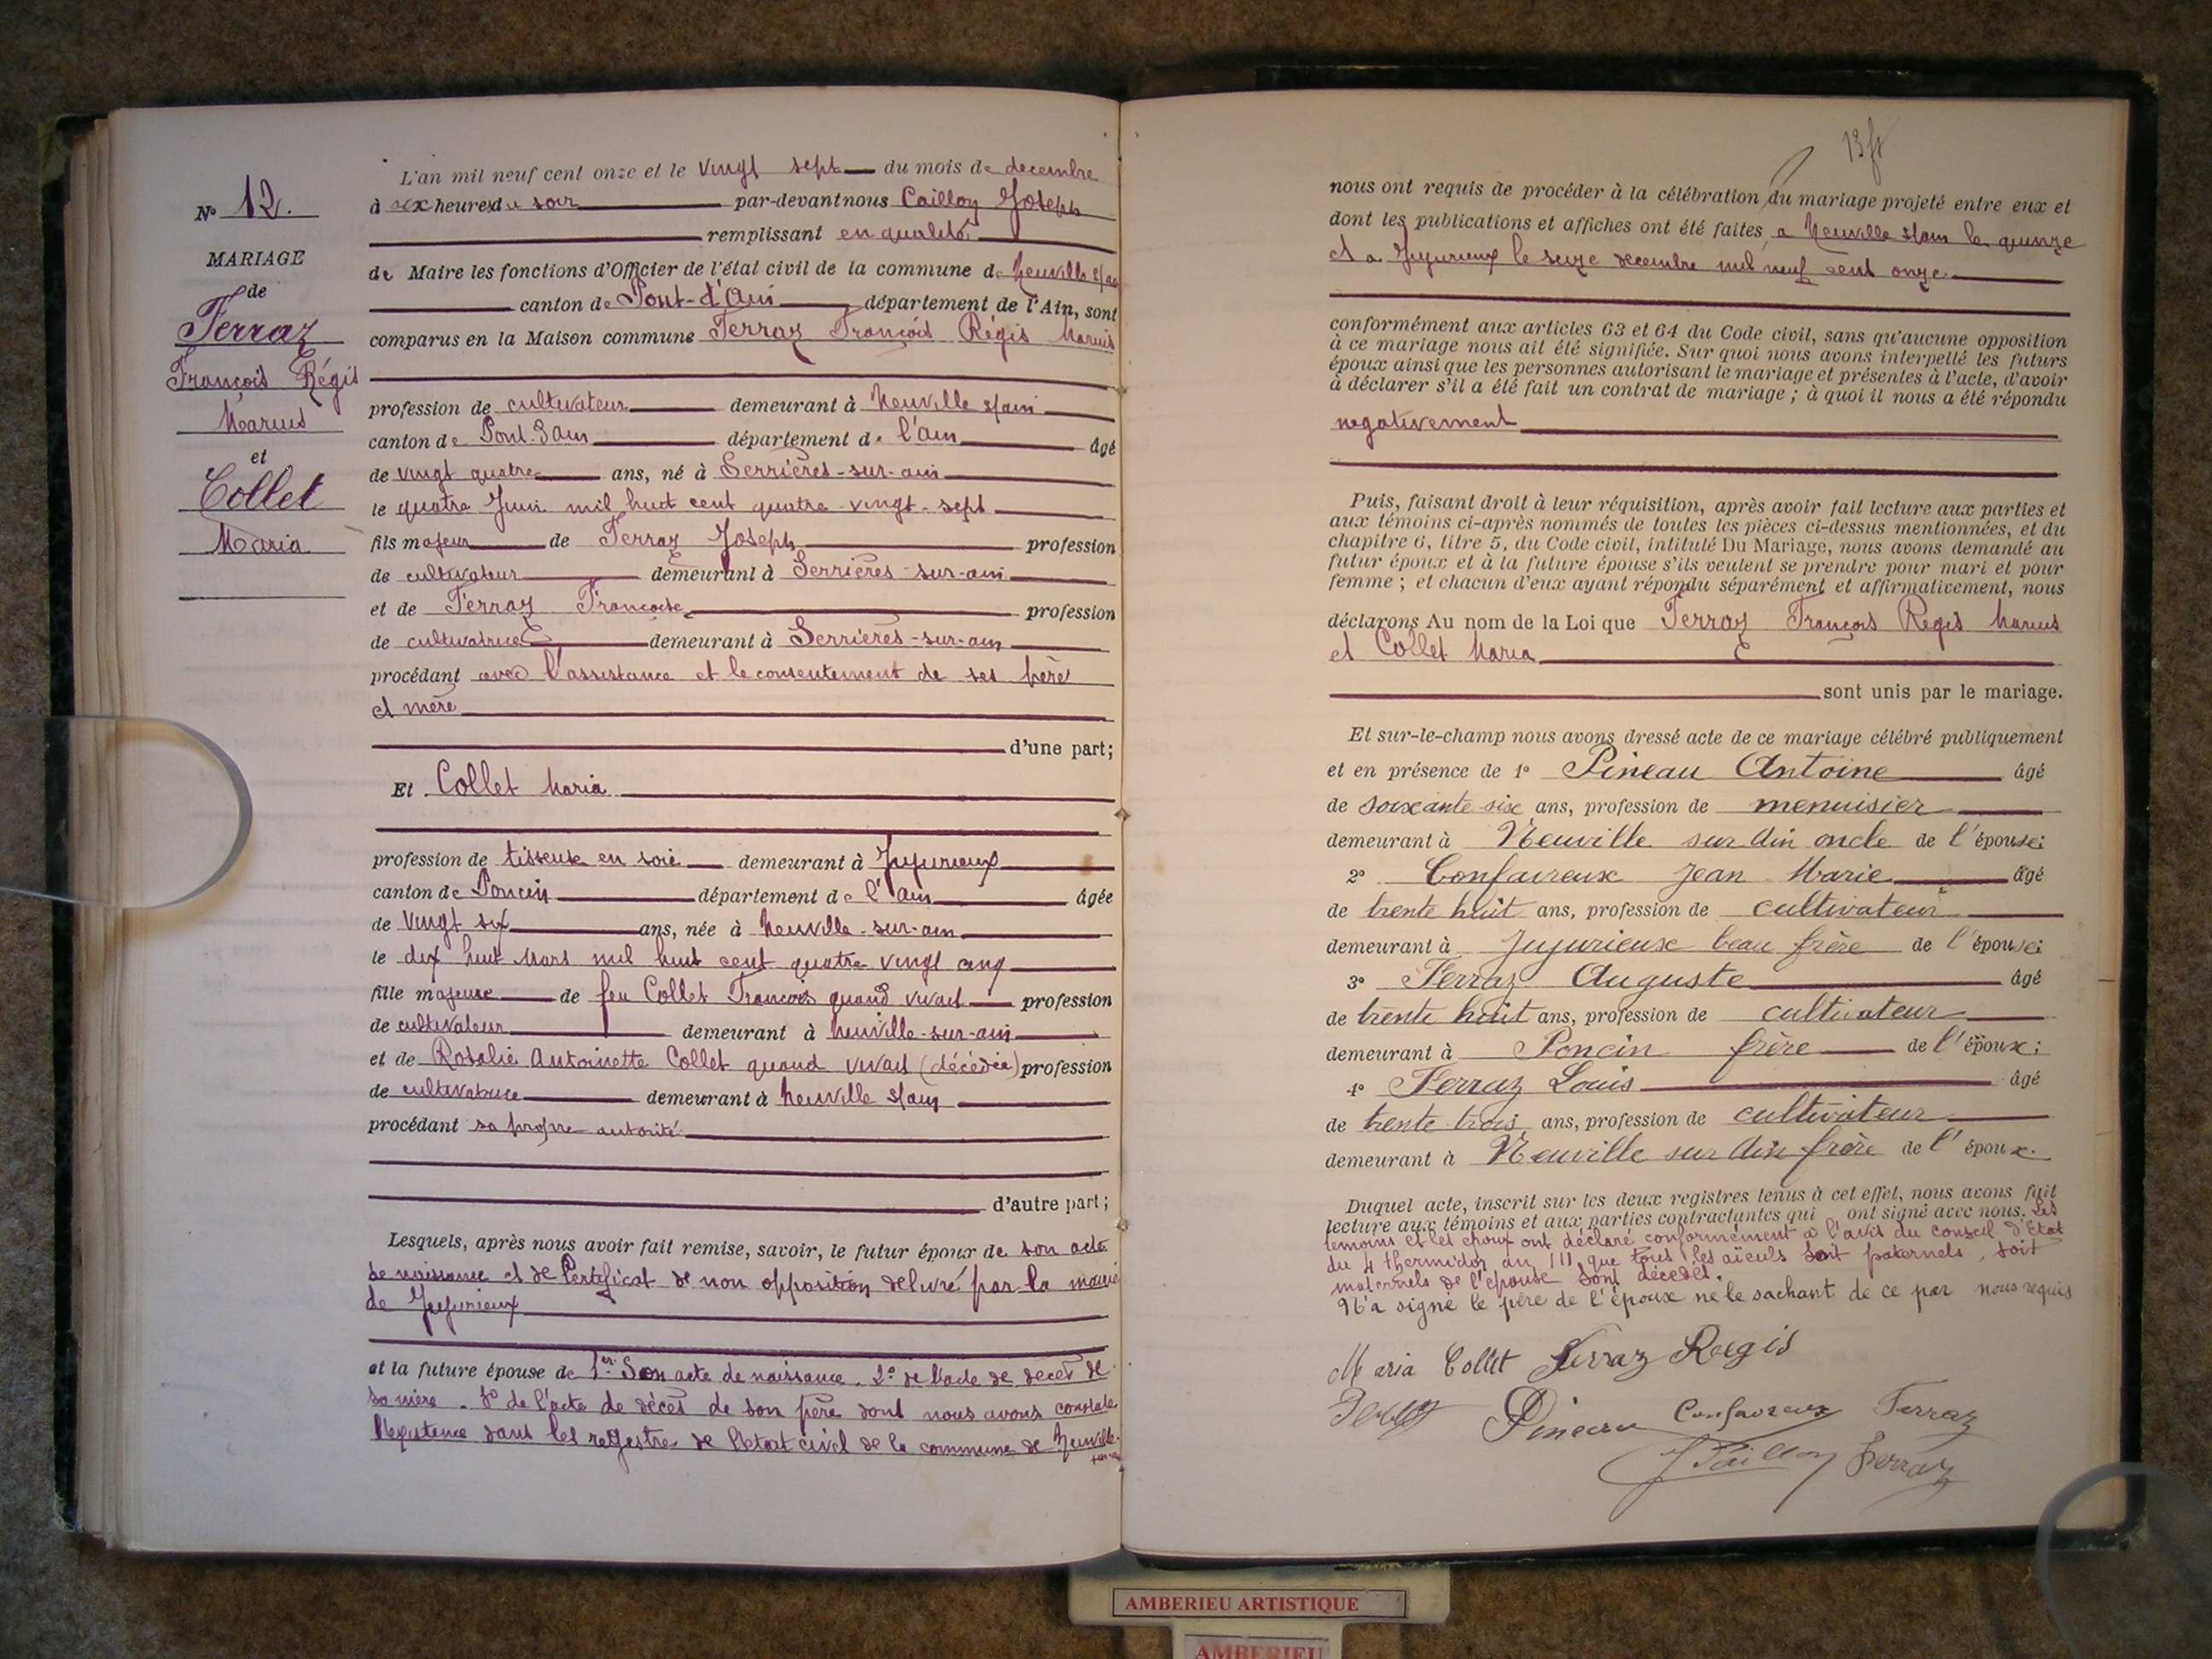 L'an mil neuf cent onze et le vingt sept du mois de decembre
N° 12. à six heures du soir par-devant nous Cailloy Joseph
remplissant en qualité
MARIAGE
de Maire les fonctions d'Officier de l'état civil de la commune de Neuville s/ain
de
canton de Pont-d'Ain département de l'Ain, sont
Ferraz
comparus en la Maison commune Ferraz François Régis Marius
François Régis
profession de cultivateur demeurant à Neuville s/ain
Marius
canton de Pont-d'ain département de l'ain âgé
et
de vingt quatre ans, né à Serrières-sur-ain
Collet
le quatre Juin mil huit cent quatre-vingt-sept
Maria
fils majeur de Ferraz Joseph profession
de cultivateur demeurant à Serrières-sur-ain
et de Ferraz Françoise profession
de cultivatrice demeurant à Serrières-sur-ain
procédant avec l'assistance et le consentement de ses père
et mère
d'une part;
Et Collet Maria
profession de tisseuse en soie demeurant à Jujurieux
canton de Poncin département de l'ain âgée
de vingt six ans, née à Neuville-sur-ain
le dix huit Mars mil huit cent quatre vingt cinq
fille majeure de feu Collet François quand vivait profession
de cultivateur demeurant à Neuville-sur-ain
et de Rosalie Antoinette Collet quand vivait (décédée) profession
de cultivatrice demeurant à Neuville s/ain
procédant sa propre autorité
d'autre part;
Lesquels, après nous avoir fait remise, savoir, le futur époux de son acte
de naissance et de Certificat de non opposition delivré par la mairie
de Jujurieux
et la future épouse de 1er Son acte de naissance. 2° de l'acte de décès de
sa mère. 3° de l'acte de décès de son père dont nous avons constaté
l'existence dans les registres de l'état civil de la commune de Neuville-
13
nous ont requis de procéder à la célébration du mariage projeté entre eux et
dont les publications et affiches ont été faites, a Neuville s/ain le quinze
et a Jujurieux le seize decembre mil neuf cent onze
conformément aux articles 63 et 64 du Code civil, sans qu'aucune opposition
à ce mariage nous ait été signifiée. Sur quoi nous avons interpellé les futurs
époux ainsi que les personnes autorisant le mariage et présentes à l'acte, d'avoir
à déclarer s'il a été fait un contrat de mariage; à quoi il nous a été répondu
negativement
Puis, faisant droit à leur réquisition, après avoir fait lecture aux parties et
aux témoins ci-après nommés de toutes les pièces ci-dessus mentionnées, et du
chapitre 6, titre 5, du Code civil, intitulé Du Mariage, nous avons demandé au
futur époux et à la future épouse s'ils veulent se prendre pour mari et pour
femme; et chacun d'eux ayant répondu séparément et affirmativement, nous
déclarons Au nom de la Loi que Ferraz François Regis Marius
et Collet Maria
sont unis par le mariage.
Et sur-le-champ nous avons dressé acte de ce mariage célébré publiquement
et en présence de 1° Pineau Antoine âgé
de soixante six ans, profession de menuisier
demeurant à Neuville sur Ain oncle de l'épouse;
2° Confavreux Jean Marie âgé
de trente huit ans, profession de cultivateur
demeurant à Jujurieux beau frère de l'épouse;
3° Ferraz Auguste âgé
de trente huit ans, profession de cultivateur
demeurant à Poncin frère de l'époux;
4° Ferraz Louis âgé
de trente trois ans, profession de cultivateur
demeurant à Neuville sur Ain frère de l'époux.
Duquel acte, inscrit sur les deux registres tenus à cet effet, nous avons fait
lecture aux témoins et aux parties contractantes qui ont signé avec nous. Les
temoins et les époux ont déclaré conformément a l'avis du conseil d'Etat
du 4 thermidor an 111, que tous les aïeuls soit paternels, soit
maternels de l'epouse sont décédés.
N'a signé le père de l'époux ne le sachant de ce par nous requis
Maria Collet Ferraz Regis
Pineau Confavreux Ferraz
J Cailloy Ferraz
AMBERIEU ARTISTIQUE
AMBERIEU